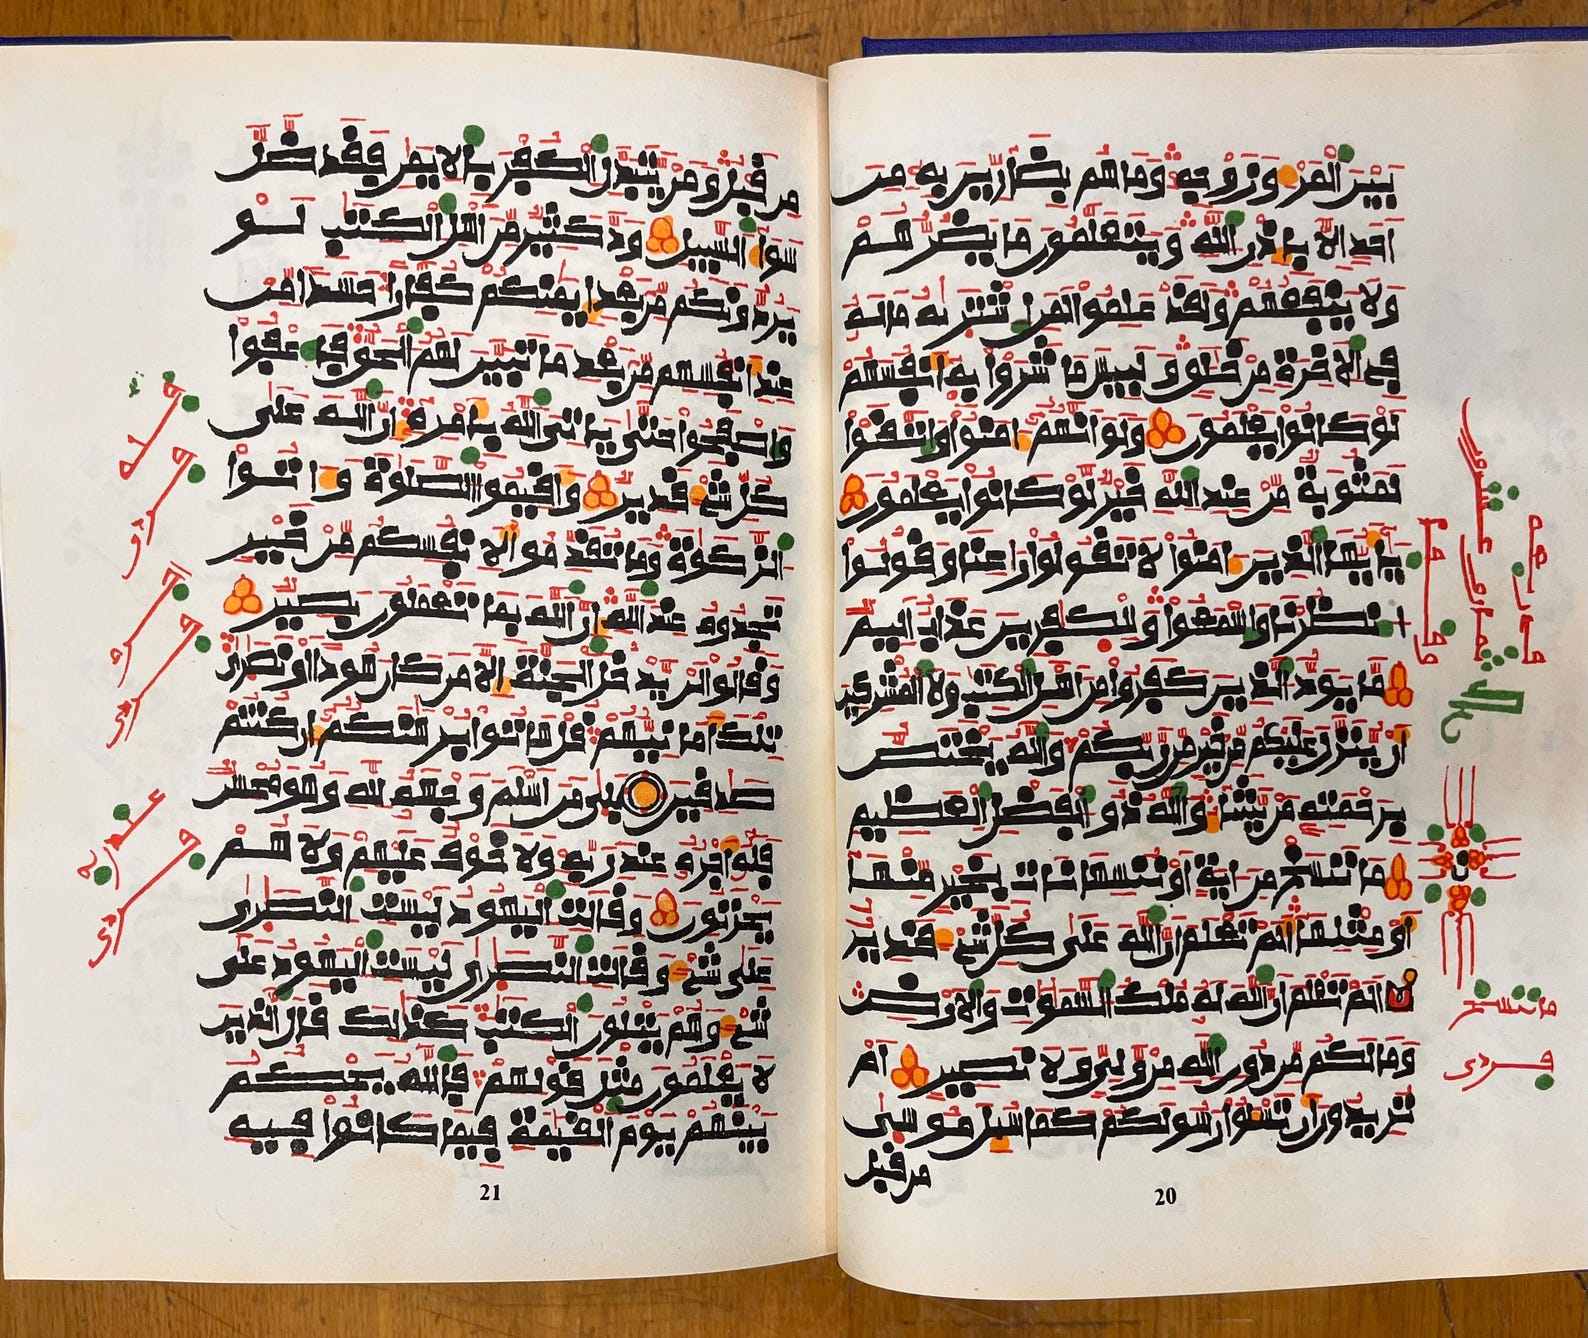 بين المرء وزوجه وما هم بضارين به من
احد الا باذن الله ويتعلمون ما يضرهم
ولا ينفعهم ولقد علموا لمن اشتريه ماله
في الاخرة من خلق ولبيس ما شروا به انفسهم
لو كانوا يعلمون ولو انهم امنوا واتقوا
لمثوبة من عند الله خير لو كانوا يعلمون
يايها الذين امنوا لا تقولوا راعنا وقولوا
انظرنا واسمعوا وللكفرين عذاب اليم
ما يود الذين كفروا من اهل الكتب ولا المشركين
ان ينزل عليكم من خير من ربكم والله يختص
برحمته من يشاء والله ذو الفضل العظيم
ما ننسخ من اية او ننسها نات بخير منها
او مثلها الم تعلم ان الله على كل شيء قدير
الم تعلم ان الله له ملك السموت والارض
وما لكم من دون الله من ولي ولا نصير ام
تريدون ان تسئلوا رسولكم كما سيل موسى
من قبل
20
ما ننسخ
من قبل ومن يتبدل الكفر بالايمن فقد ضل
سواء السبيل ود كثير من اهل الكتب لو
يردونكم من بعد ايمنكم كفارا حسدا من
عند انفسهم من بعد ما تبين لهم الحق فاعفوا
واصفحوا حتى ياتي الله بامره ان الله على
كل شيء قدير واقيموا الصلوة واتوا
الزكوة وما تقدموا لانفسكم من خير
تجدوه عند الله ان الله بما تعملون بصير
وقالوا لن يدخل الجنة الا من كان هودا او نصرى
تلك امانيهم قل هاتوا برهنكم ان كنتم
صدقين بلى من اسلم وجهه لله وهو محسن
فله اجره عند ربه ولا خوف عليهم ولا هم
يحزنون وقالت اليهود ليست النصرى
على شيء وقالت النصرى ليست اليهود على
شيء وهم يتلون الكتب كذلك قال الذين
لا يعلمون مثل قولهم فالله يحكم
بينهم يوم القيمة فيما كانوا فيه
21